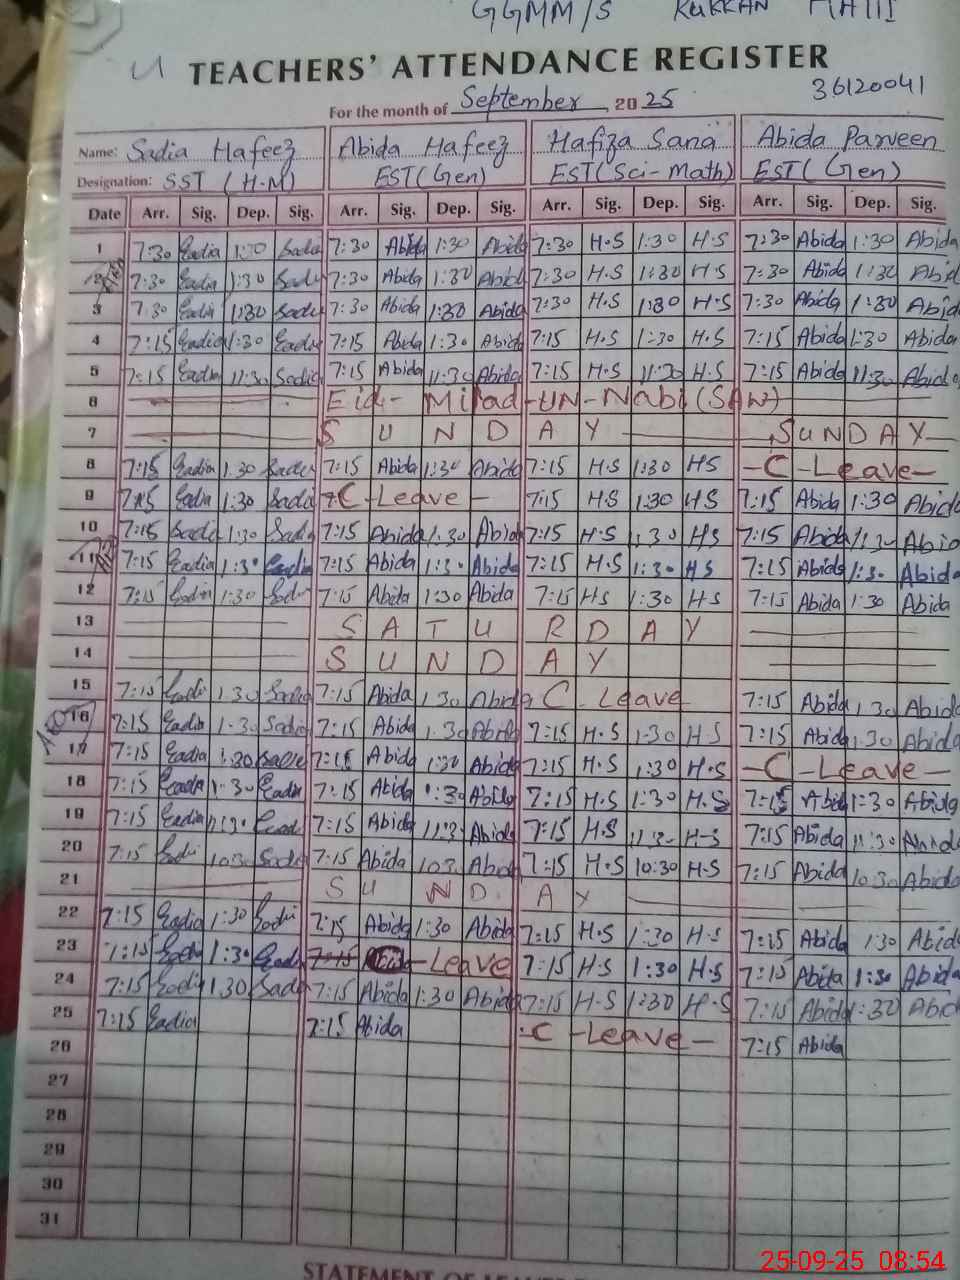 GGMM/S KUKKAN HATTI
TEACHERS' ATTENDANCE REGISTER
36120041
For the month of September, 2025
Name: Sadia Hafeez Abida Hafeez Hafiza Sana Abida Parveen
Designation: SST (H-M) EST(Gen) EST(Sci-Math) EST (Gen)
Date Arr. Sig. Dep. Sig. Arr. Sig. Dep. Sig. Arr. Sig. Dep. Sig. Arr. Sig. Dep. Sig.
1 7:30 Sadia 1:30 Sadia 7:30 Abida 1:30 Abida 7:30 H.S 1:30 H.S 7:30 Abida 1:30 Abida
2 7:30 Sadia 1:30 Sadia 7:30 Abida 1:30 Abida 7:30 H.S 1:30 H.S 7:30 Abida 1:30 Abida
3 7:30 Sadia 1:30 Sadia 7:30 Abida 1:30 Abida 7:30 H.S 1:30 H.S 7:30 Abida 1:30 Abida
4 7:15 Sadia 1:30 Sadia 7:15 Abida 1:30 Abida 7:15 H.S 1:30 H.S 7:15 Abida 1:30 Abida
5 7:15 Sadia 11:30 Sadia 7:15 Abida 11:30 Abida 7:15 H.S 11:30 H.S 7:15 Abida 11:30 Abida
6 Eid- Milad-UN-Nabi (SAW)
7 SUNDAY SUNDAY
8 7:15 Sadia 1:30 Sadia 7:15 Abida 1:30 Abida 7:15 H.S 1:30 HS -C-Leave-
9 7:15 Sadia 1:30 Sadia C-Leave- 7:15 H.S 1:30 HS 7:15 Abida 1:30 Abida
10 7:15 Sadia 1:30 Sadia 7:15 Abida 1:30 Abida 7:15 H.S 1:30 HS 7:15 Abida 1:30 Abida
11 7:15 Sadia 1:30 Sadia 7:15 Abida 1:30 Abida 7:15 H.S 1:30 HS 7:15 Abida 1:30 Abida
12 7:15 Sadia 1:30 Sadia 7:15 Abida 1:30 Abida 7:15 HS 1:30 HS 7:15 Abida 1:30 Abida
13 SATURDAY
14 SUNDAY
15 7:15 Sadi 1:30 Sadia 7:15 Abida 1:30 Abida C-Leave 7:15 Abida 1:30 Abida
16 7:15 Sadia 1:30 Sadia 7:15 Abida 1:30 Abida 7:15 H.S 1:30 H.S 7:15 Abida 1:30 Abida
17 7:15 Sadia 1:30 Sadia 7:15 Abida 1:30 Abida 7:15 H.S 1:30 H.S -C-Leave-
18 7:15 Sadia 1:30 Sadia 7:15 Abida 1:30 Abida 7:15 H.S 1:30 H.S 7:15 Abida 1:30 Abida
19 7:15 Sadia 11:30 Sadia 7:15 Abida 11:30 Abida 7:15 H.S 11:30 H-S 7:15 Abida 11:30 Abida
20 7:15 Sadi 10:30 Sadia 7:15 Abida 10:30 Abida 7:15 H.S 10:30 H.S 7:15 Abida 10:30 Abida
21 SUNDAY
22 7:15 Sadia 1:30 Sadi 7:15 Abida 1:30 Abida 7:15 H.S 1:30 H.S 7:15 Abida 1:30 Abida
23 7:15 Sadia 1:30 Sadia 7:15 -Leave 7:15 H.S 1:30 H.S 7:15 Abida 1:30 Abida
24 7:15 Sadi 1:30 Sadia 7:15 Abida 1:30 Abida 7:15 H-S 1:30 H-S 7:15 Abida 1:30 Abida
25 7:15 Sadia 7:15 Abida C-Leave- 7:15 Abida
26
27
28
29
30
31
25-09-25 08:54